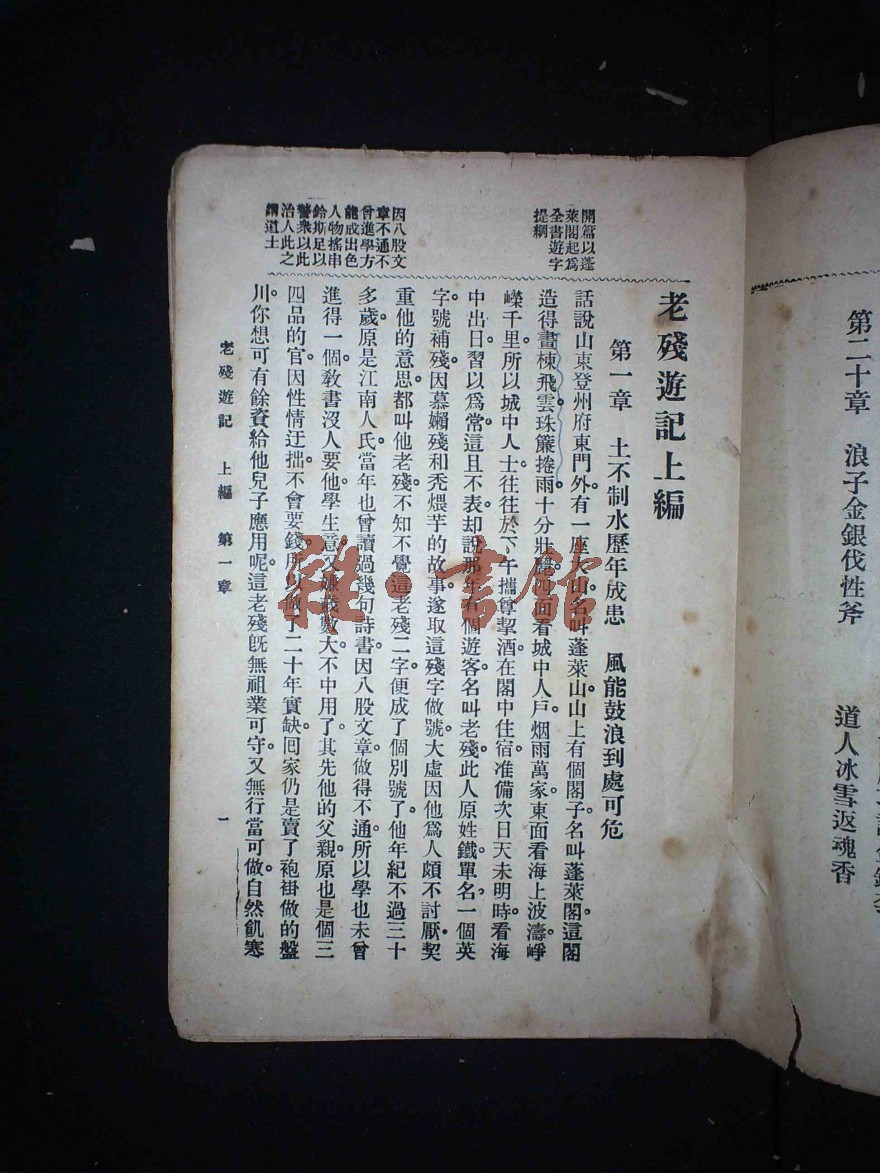 第二十章　浪子金銀伐性斧
道人冰雪返魂香
開篇以蓬
萊閣起爲
全書遊字
提綱
因八股文
章不通不
曾進學方
能成出色
人物搖串
鈴斯足以
醫衆以此
治人此之
謂道士
老殘遊記上編
第一章　土不制水歷年成患　風能鼓浪到處可危
話說山東登州府東門外。有一座大山。名叫蓬萊山。山上有個閣子。名叫蓬萊閣。這閣
造得畫棟飛雲。珠簾捲雨。十分壯麗。四面看城中人戶。烟雨萬家。東面看海上波濤。崢
嶸千里。所以城中人士。往往於下午攜尊挈酒。在閣中住宿。准備次日天未明時。看海
中出日。習以爲常。這且不表。却說那年有個遊客。名叫老殘。此人原姓鐵。單名一個英
字。號補殘。因慕懶殘和禿煨芋的故事。遂取這殘字做號。大虛因他爲人頗不討厭。契
重他的意思。都叫他老殘。不知不覺。這老殘二字。便成了個別號了。他年紀不過三十
多歲。原是江南人氏。當年也曾讀過幾句詩書。因八股文章做得不通。所以學也未曾
進得一個。敎書沒人要他。學生意又嫌歲數大。不中用了。其先他的父親。原也是個三
四品的官。因性情迂拙。不會要錢。所以做了二十年實缺。回家仍是賣了袍褂做的盤
川。你想可有餘資給他兒子應用呢。這老殘旣無祖業可守。又無行當可做。自然飢寒
老殘遊記　上編　第一章
一
雜·書館